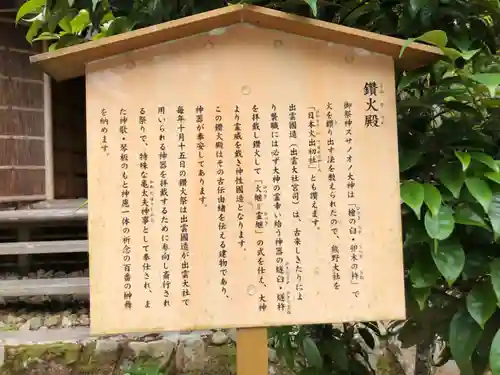 鑽火殿
御祭神スサノオノ大神は「檜の臼・卯木の杵」で
火を鑽り出す法を教えられたので、熊野大社を
「日本火出初社」とも讃えます。
出雲國造（出雲大社宮司）は、古来しきたりによ
り襲職には必ず大神の霊幸い給う神器の燧臼 燧杵
を拝戴し鑽火して「火継＝霊継」の式を仕え、大神
より霊威を戴き神性國造となります。
この鑽火殿はその古伝由緒を伝える建物であり、
神器が奉安してあります。
毎年十月十五日の鑽火祭は出雲國造が出雲大社で
用いられる神器を拝戴するために参向し斎行され
る祭りで、特殊な亀太夫神事として奉仕され、ま
た神歌・琴板のもと神恩一体の祈念の百番の神舞
を納めます。